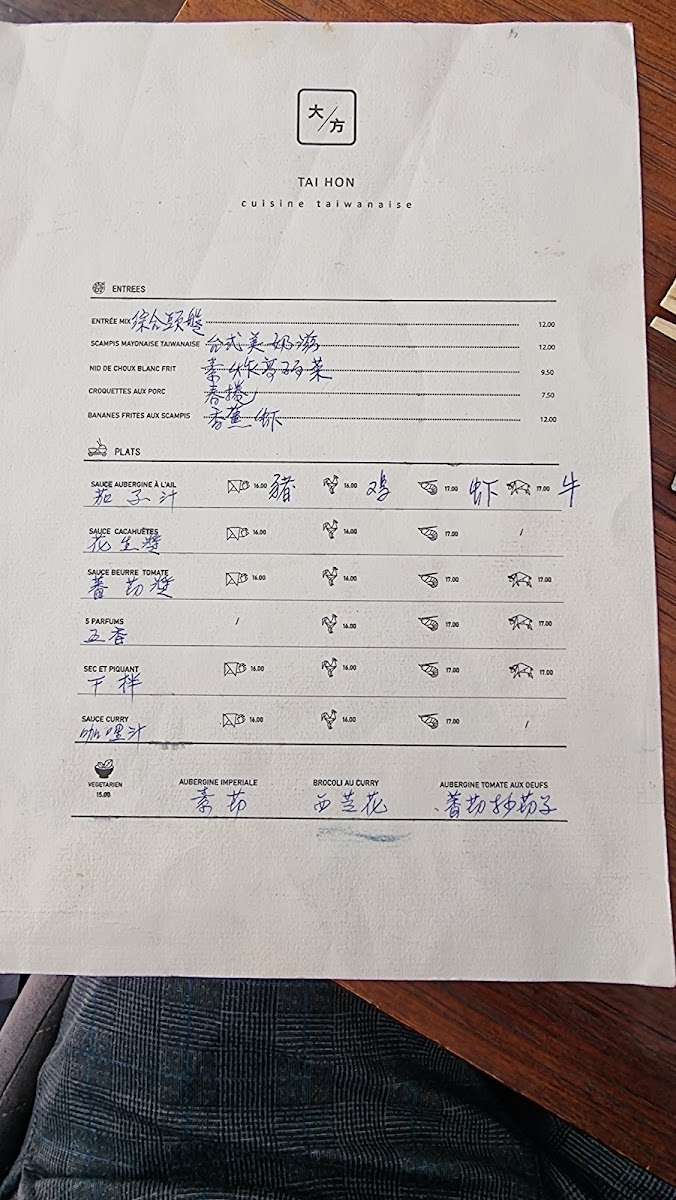 大/方
TAI HON
cuisine taiwanaise
ENTREES
ENTRÉE MIX 綜合頭盤 12.00
SCAMPIS MAYONAISE TAIWANAISE 台式美奶滋 12.00
NID DE CHOUX BLANC FRIT 素炸高丽菜 9.50
CROQUETTES AUX PORC 春捲 7.50
BANANES FRITES AUX SCAMPIS 香蕉虾 12.00
PLATS
SAUCE AUBERGINE À L'AIL 16.00 豬 16.00 鸡 17.00 虾 17.00 牛
茄子汁
SAUCE CACAHUÈTES 16.00 16.00 17.00 /
花生醬
SAUCE BEURRE TOMATE 16.00 16.00 17.00 17.00
蕃茄醬
5 PARFUMS / 16.00 17.00 17.00
五香
SEC ET PIQUANT 16.00 16.00 17.00 17.00
干拌
SAUCE CURRY 16.00 16.00 17.00 /
咖哩汁
VEGETARIEN AUBERGINE IMPERIALE BROCOLI AU CURRY AUBERGINE TOMATE AUX OEUFS
15.00 素茄 西兰花 蕃茄炒茄子